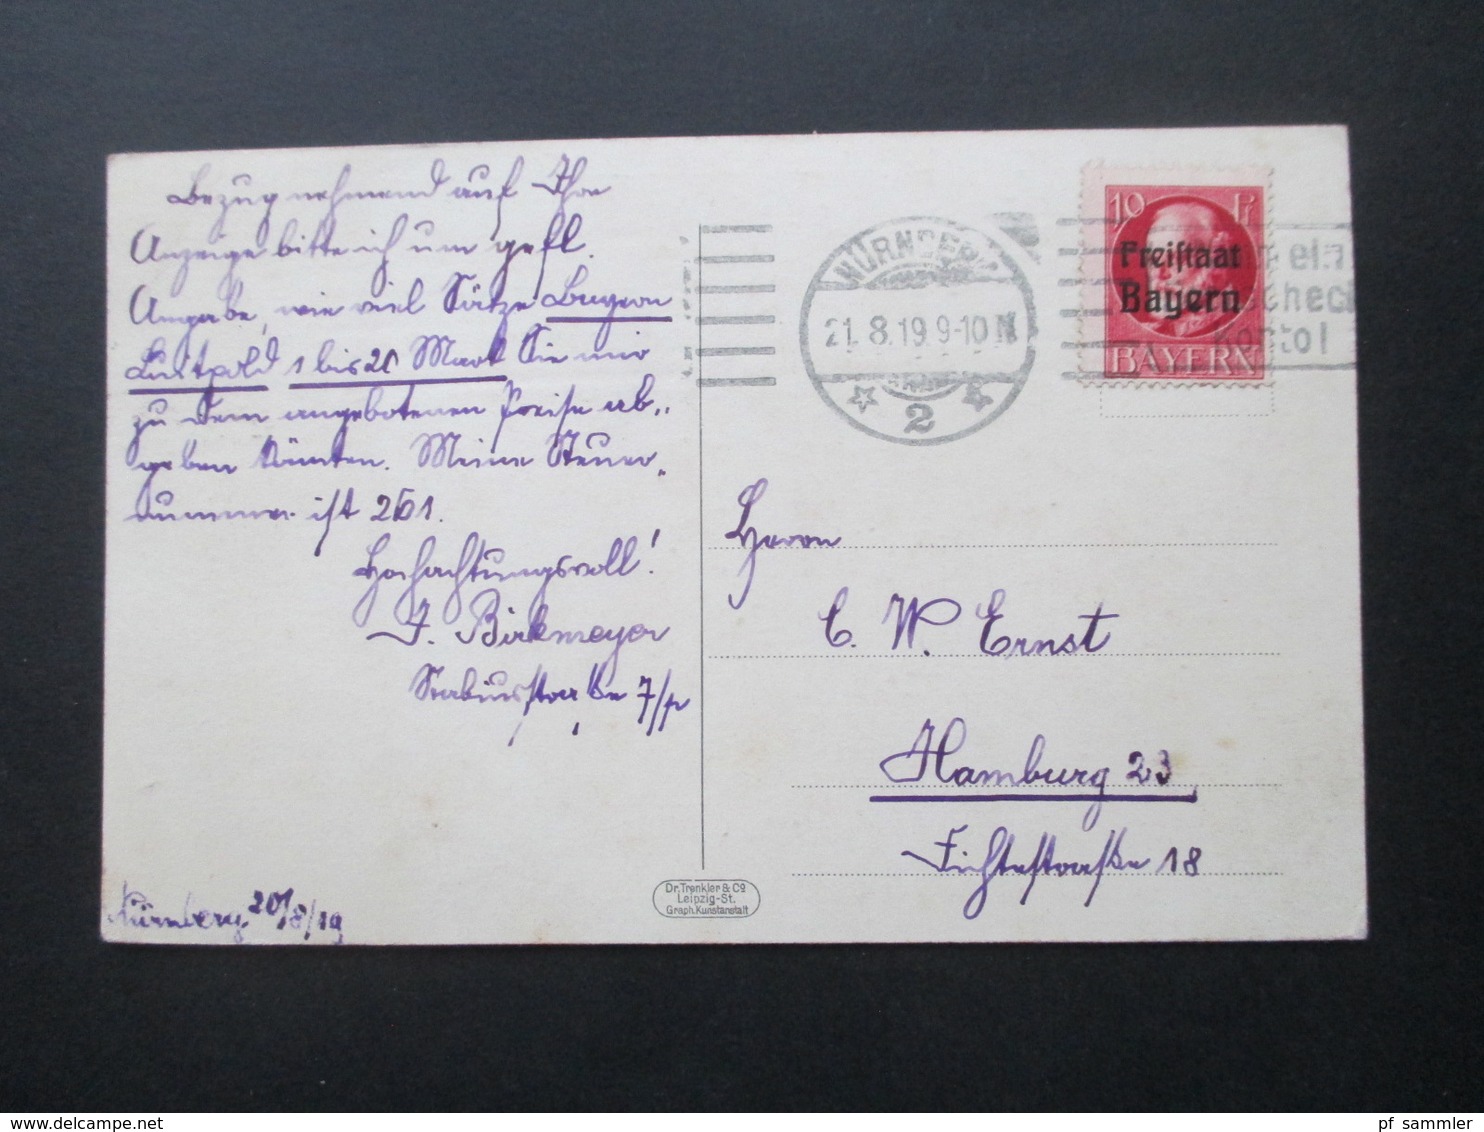 Bezug nehmend auf Ihre
Anzeige bitte ich um gefl.
Angabe, wie viel Sätze Bayern
Luitpold 1 bis 20 Mark Sie mir
zu dem angebotenen Preise ab-
geben könnten. Meine Steuer-
nummer ist 261.
Hochachtungsvoll!
J. Birkmeyer
7/
Nürnberg, 20/8/19
NÜRNBERG
21. 8. 19. 9-10 N
2
ein
scheck
konto!
10 Pf
Freistaat
Bayern
BAYERN
Herrn
C. W. Ernst
Hamburg 23
Fichtestraße 18
Dr. Trenkler & Co
Leipzig-St.
Graph. Kunstanstalt
pf_sammler